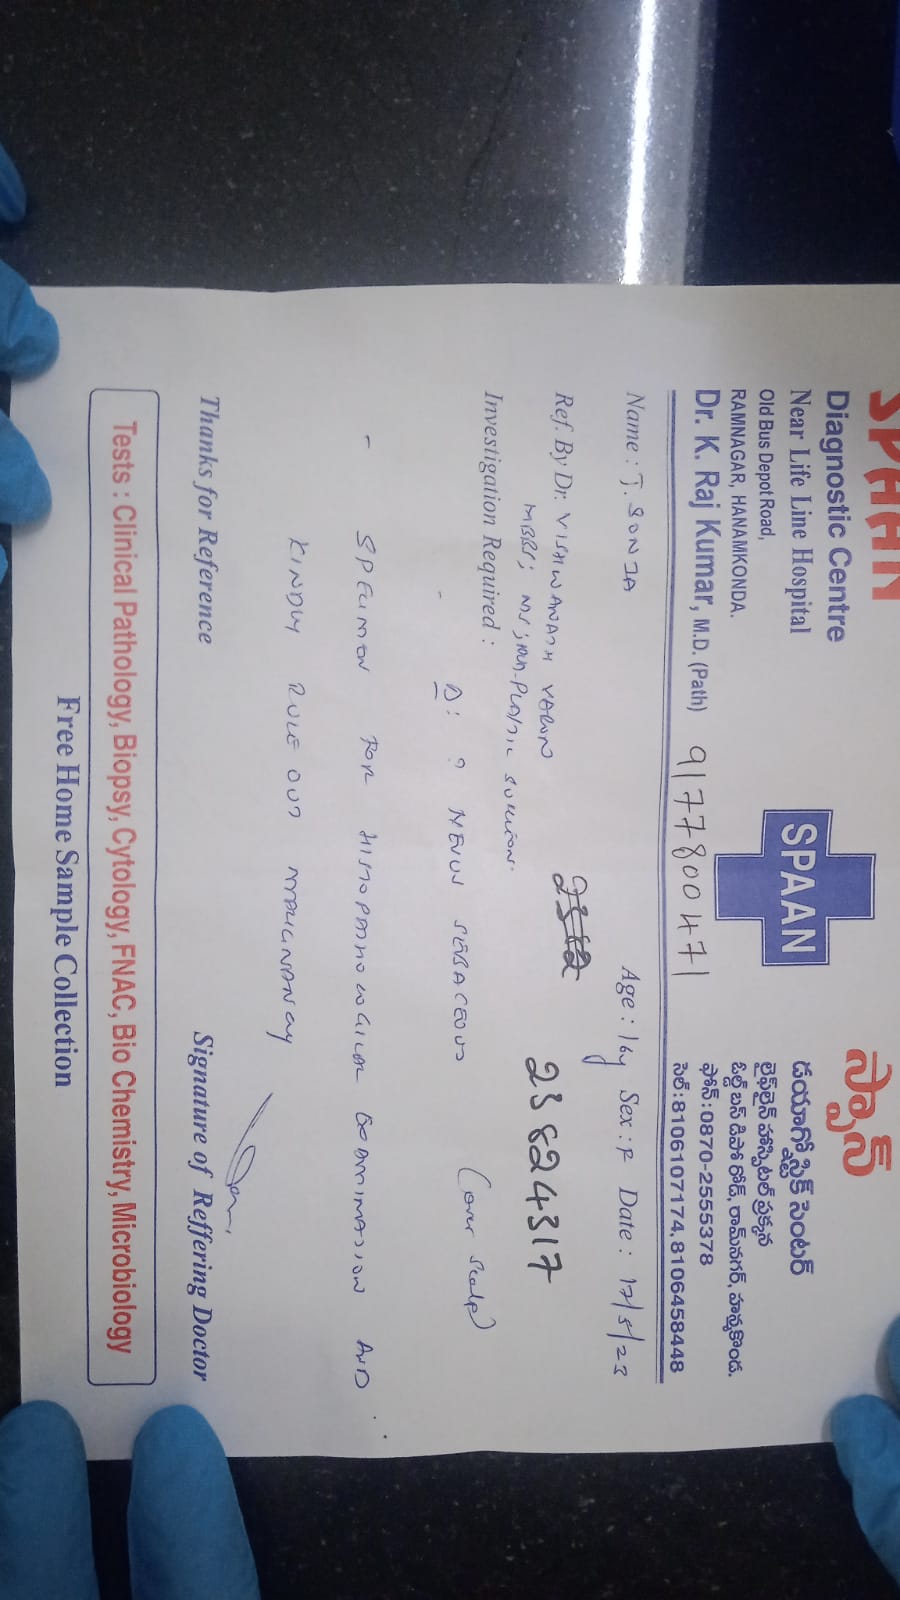 SPAAN
Diagnostic Centre
Near Life Line Hospital
Old Bus Depot Road,
RAMNAGAR, HANAMKONDA.
Dr. K. Raj Kumar, M.D. (Path) 9177800471
SPAAN
స్పాన్
డయాగ్నోస్టిక్ సెంటర్
లైఫ్‌లైన్ హాస్పిటల్ ప్రక్కన
ఓల్డ్ బస్ డిపో రోడ్, రామ్‌నగర్, హన్మకొండ.
ఫోన్ : 0870-2555378
సెల్ : 8106107174, 8106458448
Name : T. SONIA Age : 16y Sex : F Date : 17/5/23
Ref. By Dr. VISHWANATH VARUN
MBBS; MS; 23824317
Investigation Required :
D: ? NEVUS SEBACEOUS (over scalp)
- SPECIMEN FOR HISTOPATHOLOGICAL EXAMINATION AND
KINDLY RULE OUT MALIGNANCY
Thanks for Reference Signature of Reffering Doctor
Tests : Clinical Pathology, Biopsy, Cytology, FNAC, Bio Chemistry, Microbiology
Free Home Sample Collection